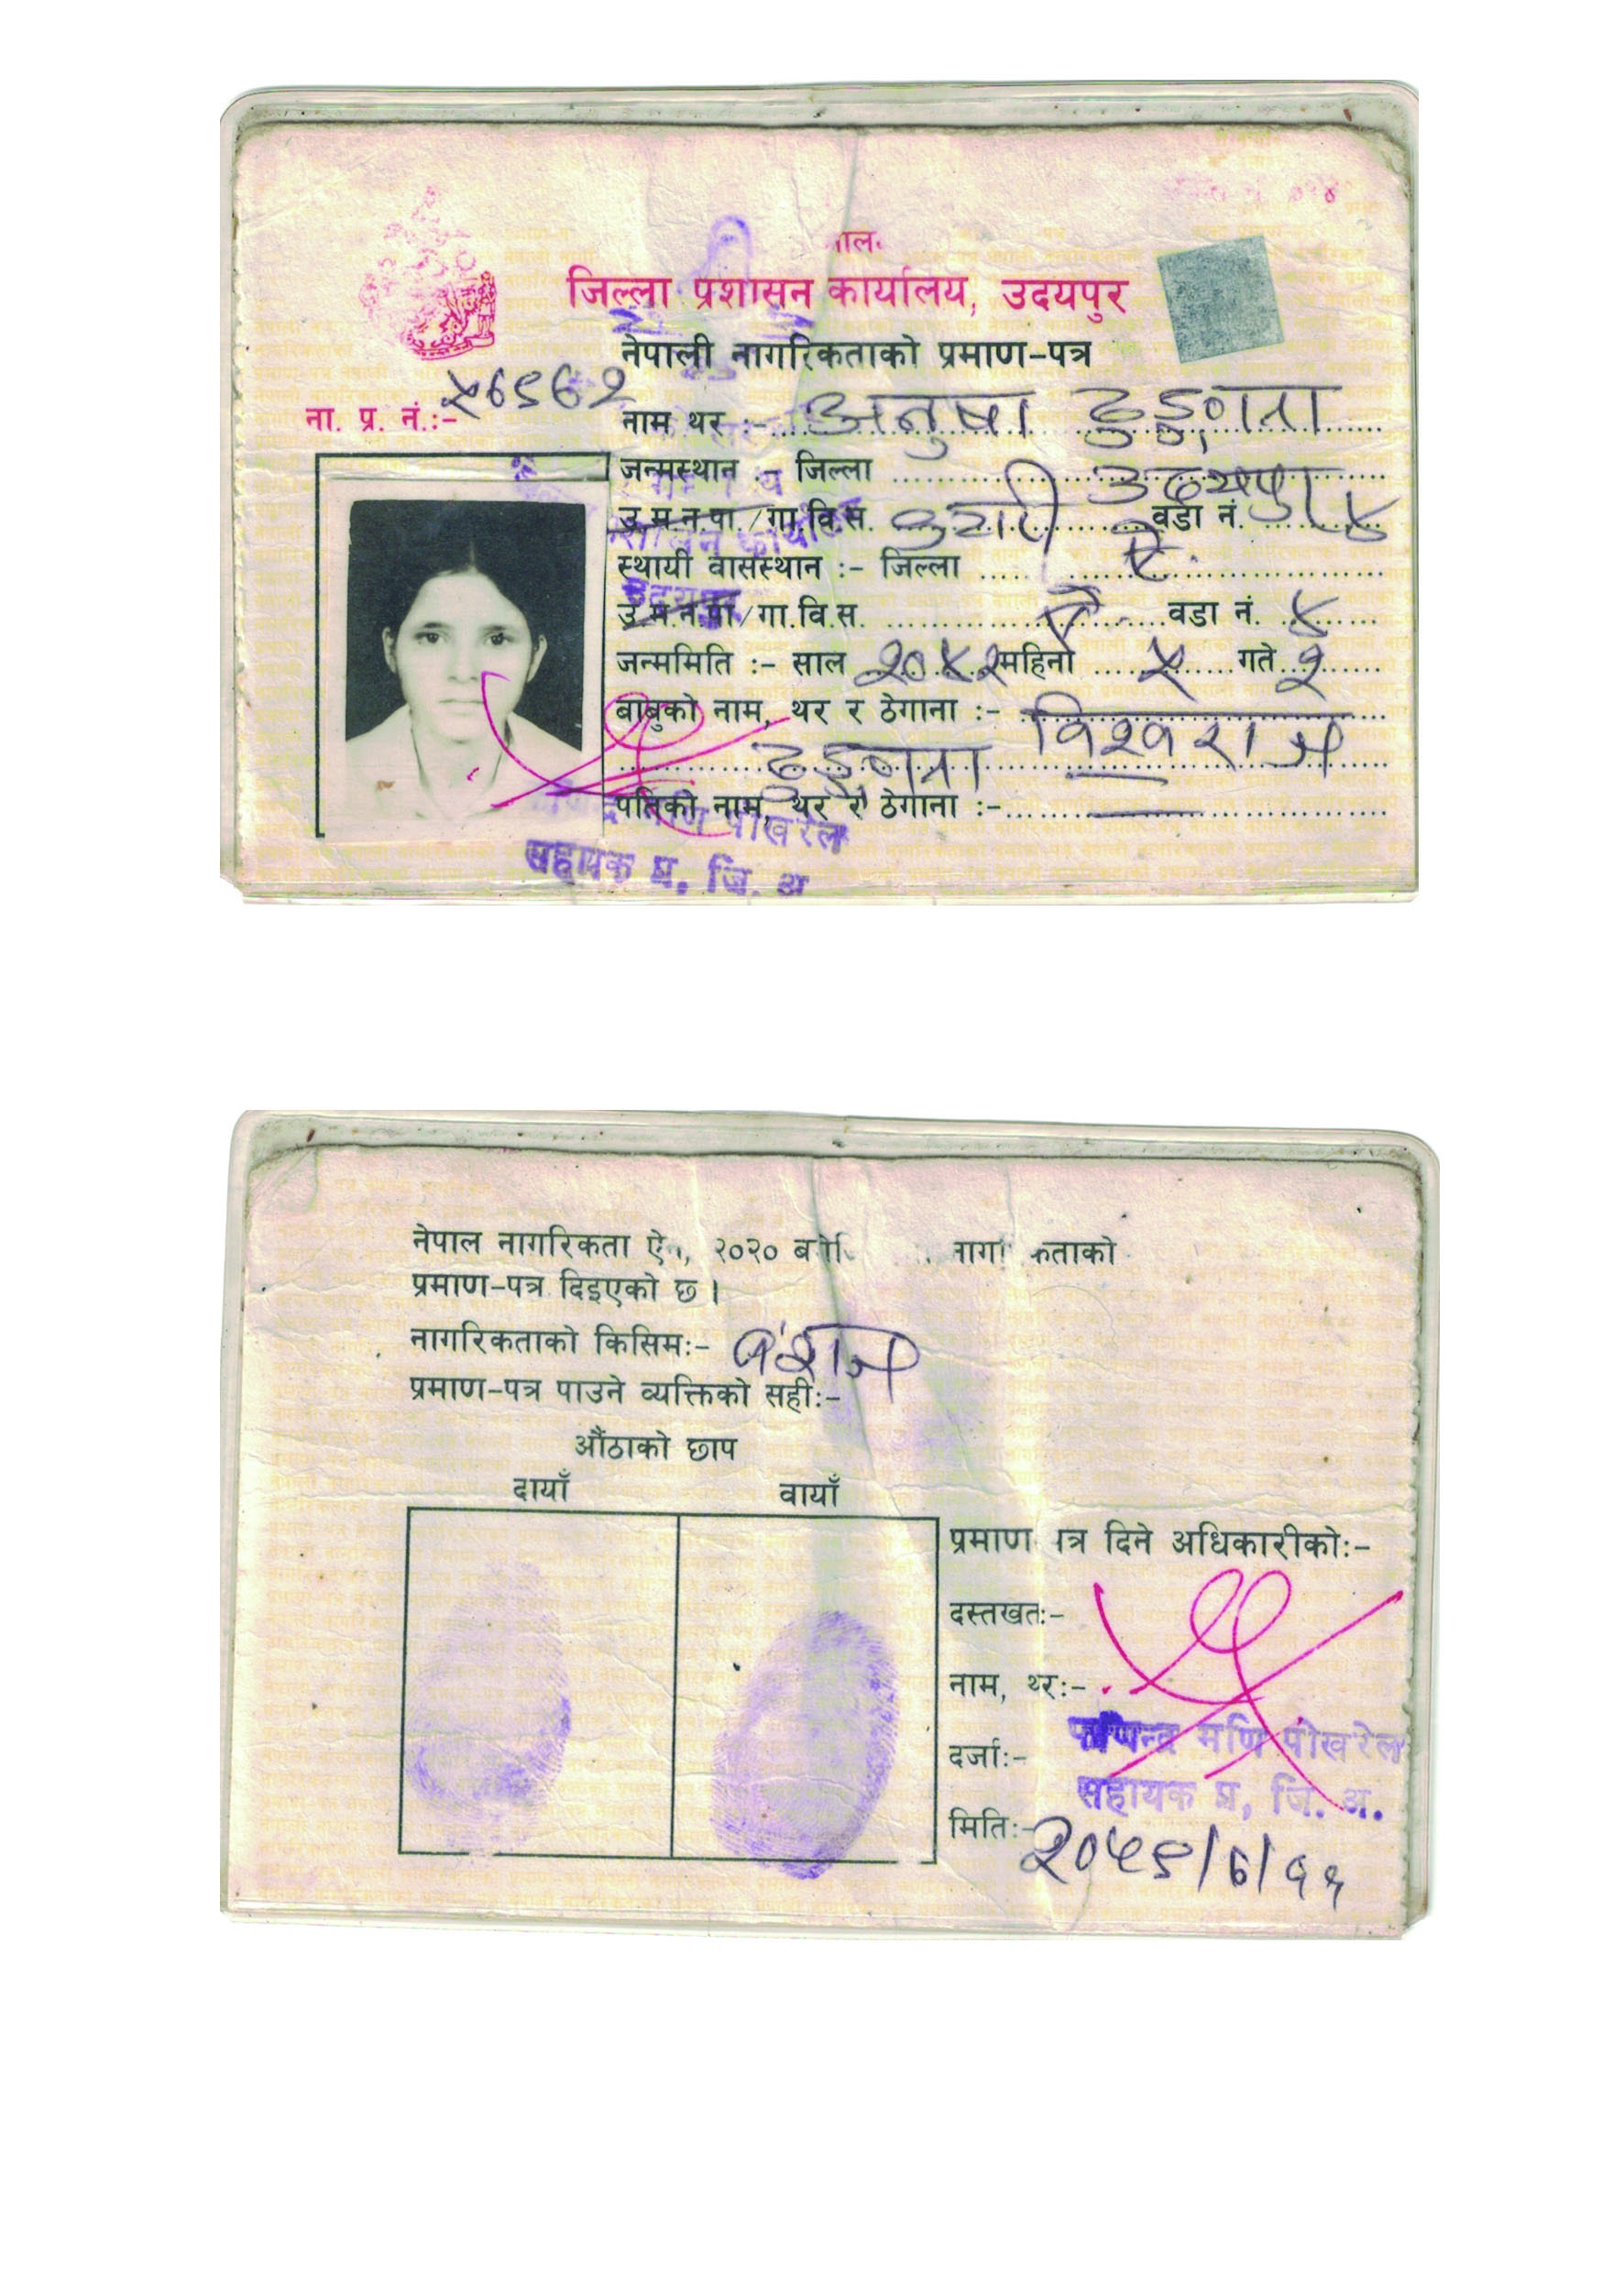 जिल्ला प्रशासन कार्यालय, उदयपुर
नेपाली नागरिकताको प्रमाण-पत्र
ना. प्र. नं.:-
नाम थर :- अनुषा ढुङ्गाना
जन्मस्थान :- जिल्ला उदयपुर
उ.म.न.पा./गा.वि.स. वडा नं. ४
स्थायी वासस्थान :- जिल्ला ऐ.
उ.म.न.पा/गा.वि.स. ऐ वडा नं. ४
जन्ममिति :- साल २०४२ महिना ५ गते २
बाबुको नाम, थर र ठेगाना :- विश्वराज
ढुङ्गाना
पतिको नाम, थर र ठेगाना :-
मणि पोखरेल
सहायक प्र. जि. अ
नेपाल नागरिकता २०२०
प्रमाण-पत्र दिइएको छ ।
नागरिकताको किसिमः- वंशज
प्रमाण-पत्र पाउने व्यक्तिको सहीः-
औंठाको छाप
दायाँ वायाँ
प्रमाण दिने अधिकारीकोः-
दस्तखतः-
नाम, थरः-
मणि पोखरेल
दर्जाः-
सहायक प्र. जि. अ.
मितिः-